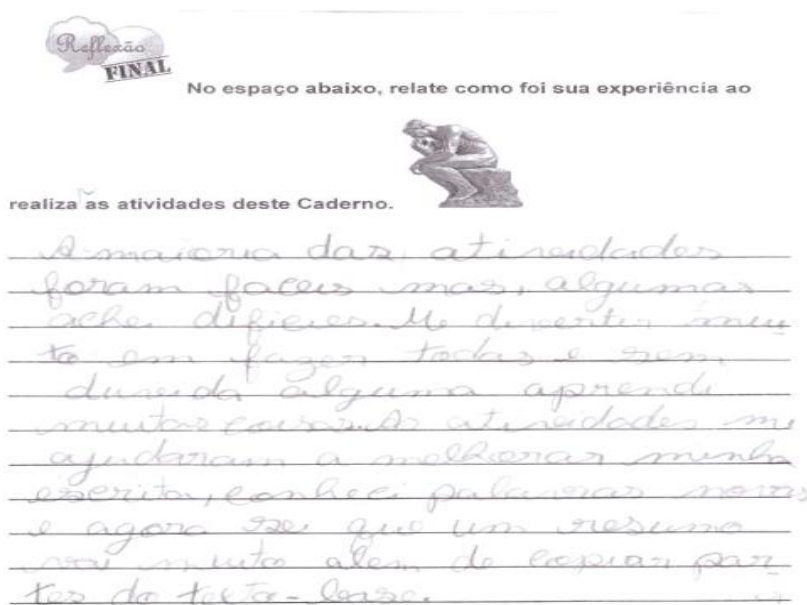 Reflexão
FINAL
No espaço abaixo, relate como foi sua experiência ao
realiza as atividades deste Caderno.
A maioria das atividades
foram faceis mas, algumas
achei dificies. Me divertir mui
to em fazer todas e sem
duvida alguma aprendi
muitas coisas. As atividades me
ajudaram a melhorar minha
escrita, conheci palavras novas
e agora sei que um resumo
vai muito alem de copiar par
tes do texto-base.